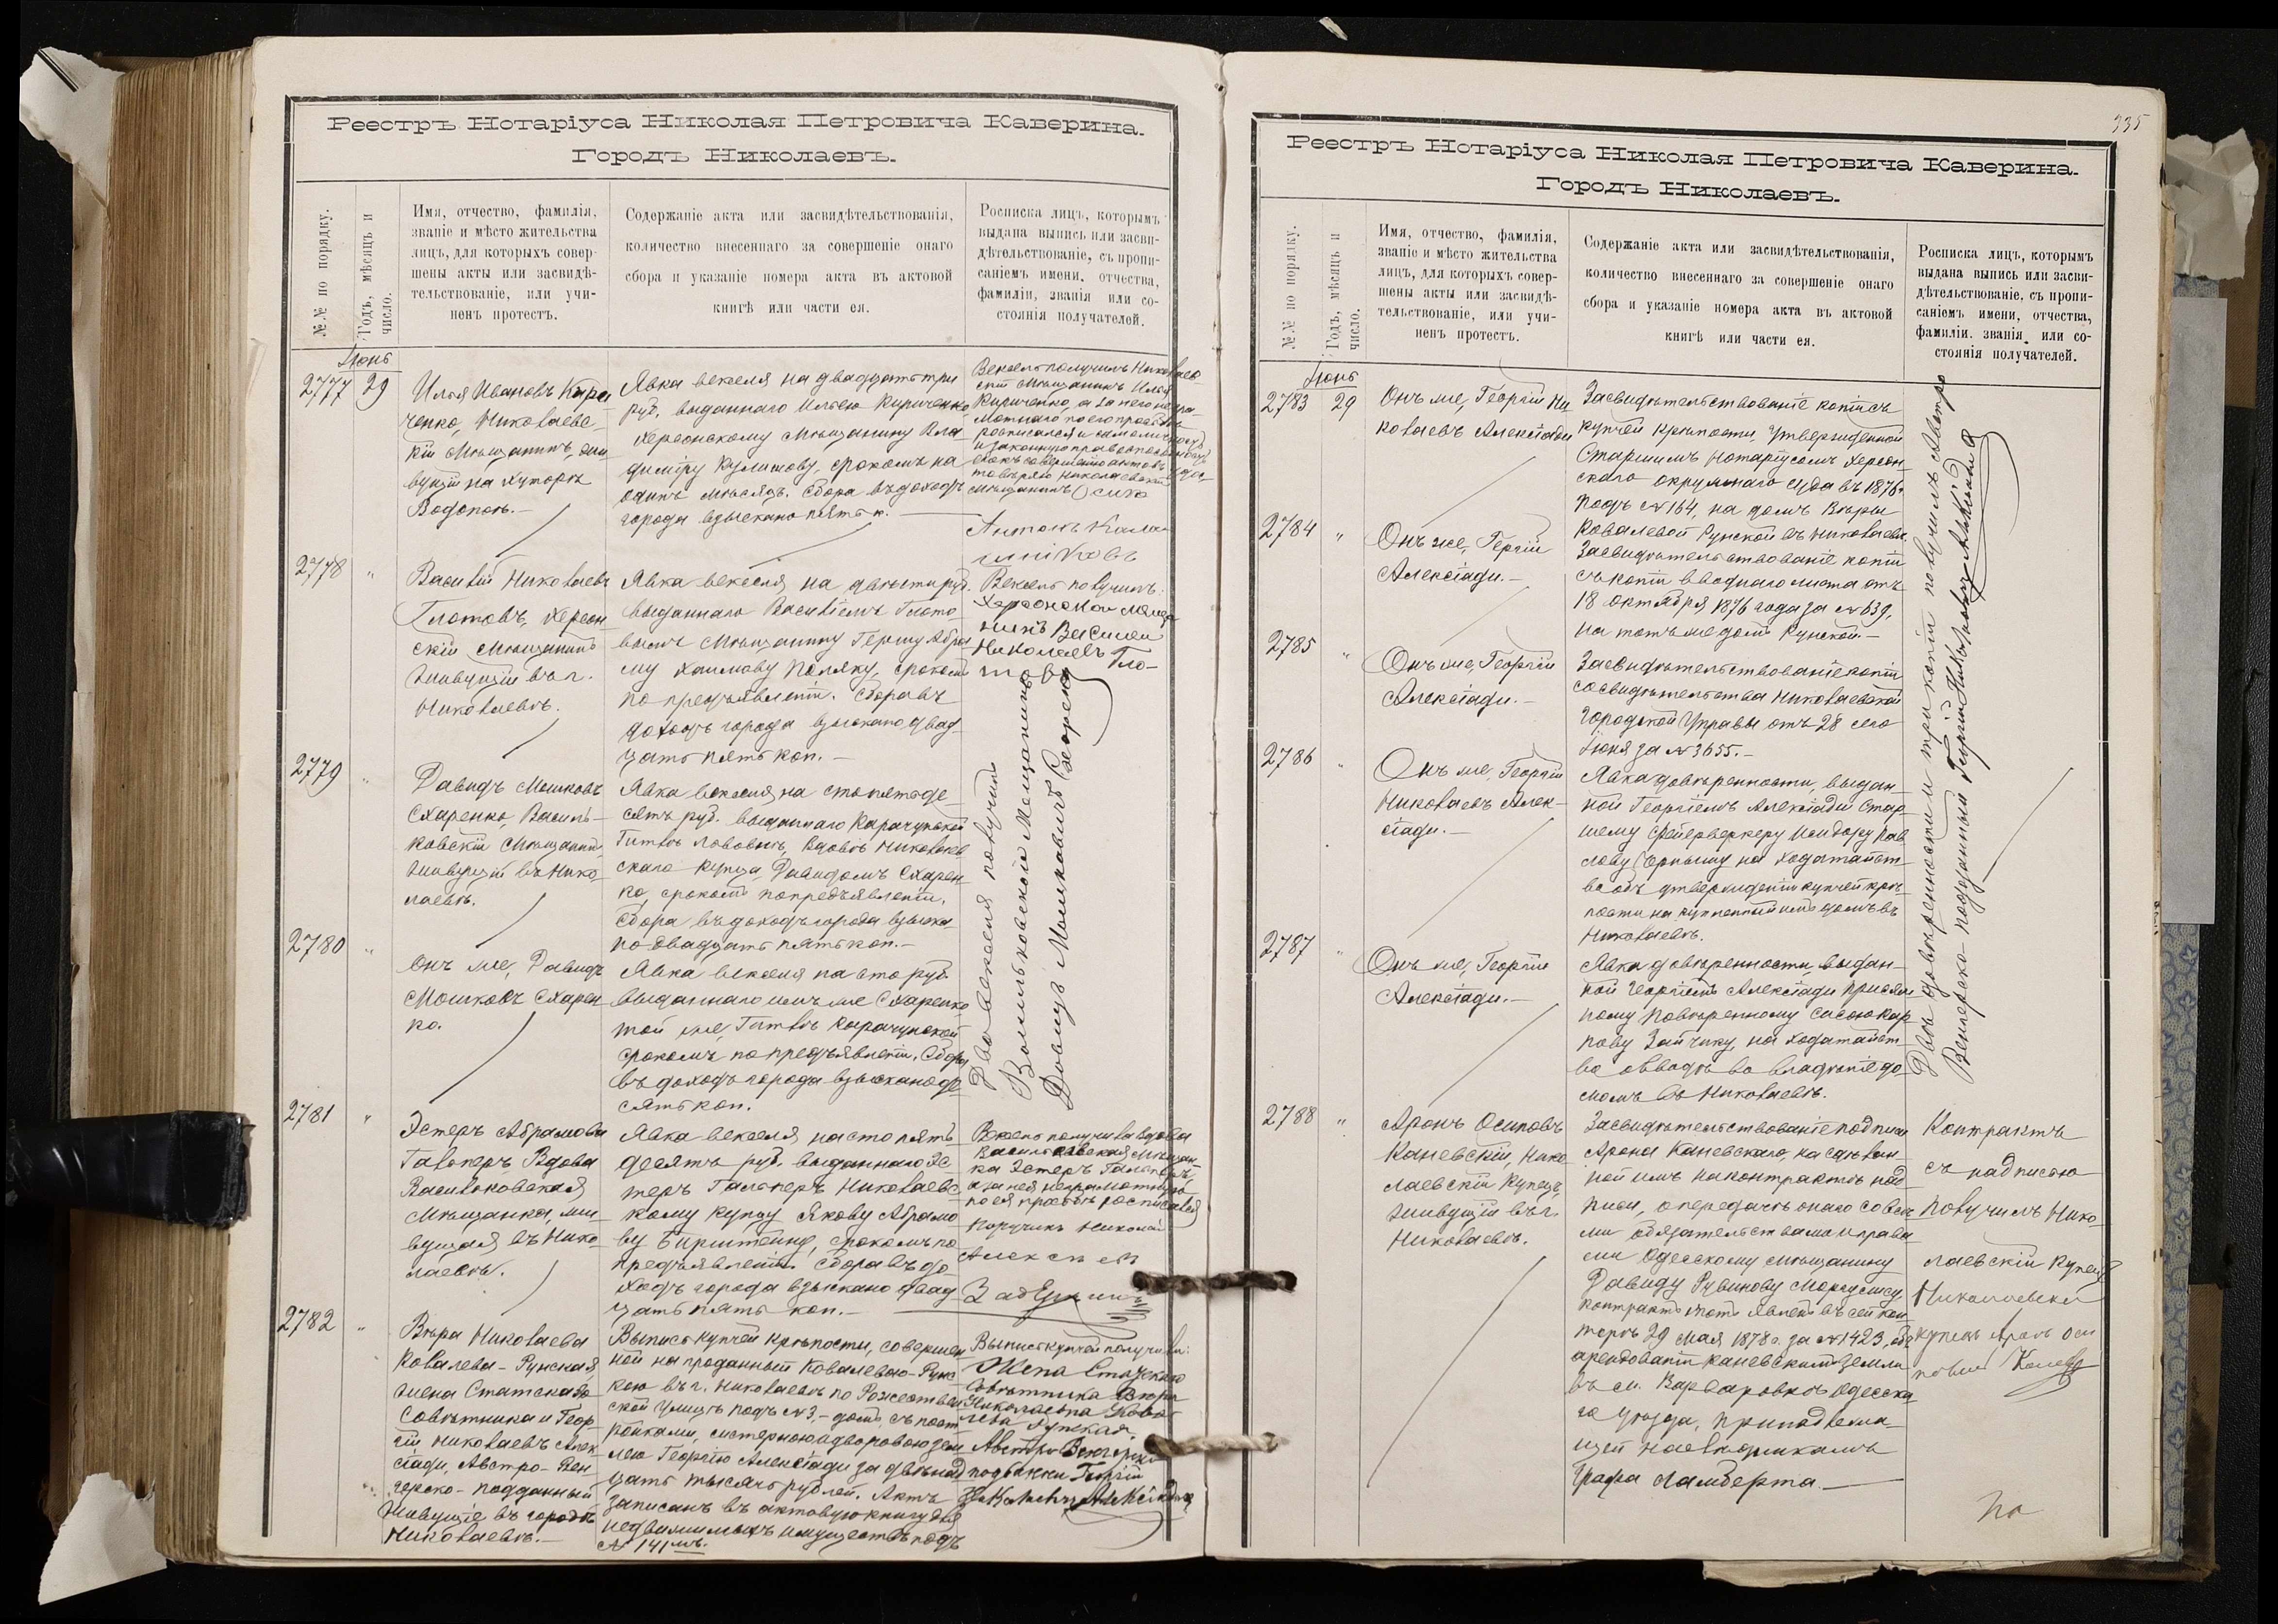 Реестръ Нотаріуса Николая Петровича Каверина.
Городъ Николаевъ.
№№ по порядку.
Годъ, мѣсяцъ и
число.
Имя, отчество, фамилія,
званіе и мѣсто жительства
лицъ, для которыхъ совер-
шены акты или засвидѣ-
тельствованіе, или учи-
ненъ протестъ.
Содержаніе акта или засвидѣтельствованія,
количество внесеннаго за совершеніе онаго
сбора и указаніе номера акта въ актовой
книгѣ или части ея.
Росписка лицъ, которымъ
выдана выпись или засви-
дѣтельствованіе, съ пропи-
саніемъ имени, отчества,
фамиліи, званія или со-
стоянія получателей.
Іюнь
2777 29
Илья Ивановъ Кири
ченко, Николаевс-
кій мѣщанинъ, жи
вущій на хуторѣ
Водопоѣ.—
Явка векселя на двадцать три
руб., выданнаго Ильею Кириченко
Херсонскому мѣщанину Вла
димиру Кулишову, срокомъ на
одинъ мѣсяцъ. Сбора въ доходъ
города взыскано пять к.
Вексель получилъ Николаев-
скій мѣщанинъ Илья
Кириченко, а за него негра-
мотнаго по его просьбѣ
росписался
мѣщанинъ
Антонъ
2778 "
Василій Николаевъ
Глотовъ, Херсон
скій мѣщанинъ
живущій въ г.
Николаевѣ.
Явка векселя, на двѣсти руб.
выданнаго Василіемъ Глото
вымъ мѣщанину Гершу Абра
му Хаимову Поляку, срокомъ
по предъявленіи. Сбора въ
доходъ города взыскано двад
цать пять коп.—
Вексель получилъ
Херсонской меща
нинъ Василей
Николаевъ Гло-
товъ
2779 "
Давидъ Мошковъ
Схаренко, Василь-
ковскій мѣщанинъ
живущій въ Нико-
лаевѣ.
Явка векселя, на сто пятьде-
сятъ руб. выданнаго Карачунской
Гитлѣ Лововнѣ, вдовѣ Николаев
скаго купца, Давидомъ Схарен-
ко, срокомъ по предъявленіи.
Сбора въ доходъ города взыска-
но двадцать пять коп.—
Два векселя получилъ
Васильковской Мещанинъ
Довидъ Мошковичъ
2780 "
Онъ же, Давидъ
Мошковъ Схарен
ко.
Явка векселя на сто руб.
выданнаго имъ же Схаренко
той же, Гитлѣ Карачунской
срокомъ, по предъявленіи. Сбора
въ доходъ города взыскано де-
сять коп.
2781 "
Эстеръ Абрамова
Гальперъ, вдова
Васильковская
мѣщанка, жи-
вущая въ Нико-
лаевѣ.
Явка векселя, на сто пять
десятъ руб. выданнаго Эс
теръ Гальперъ Николаевс
кому купцу Якову Абрамо
ву Бирштейну, срокомъ по
предъявленіи. Сбора въ до-
ходъ города взыскано двад-
цать пять коп.—
Вексель получила вдова
Васильковская мѣщан-
ка Эстеръ Гальперъ,
а за нея неграмотную
по ея просьбѣ росписался
Поручикъ Николай
Алексѣев
2782 "
Вѣра Николаева
Ковалева-Рунская,
жена Статскаго
Совѣтника и Геор-
гій Николаевъ Алек
сіади, Австро-Вен
герско-подданный
живущіе въ городѣ
Николаевѣ.—
Выпись купчей крѣпости, совершен
ной на проданный Ковалевою-Рунс
кою въ г. Николаевѣ по Рождествен
ской улицѣ подъ № 3,- домъ съ пост
ройками, систерною и дворовою зем
лею Георгію Алексіади за двѣнад
цать тысячъ рублей. Актъ
записанъ въ актовую книгу для
недвижимыхъ имуществъ подъ
№ 141мъ.
Выпись купчей получили:
Жена Статскаго
Совѣтника Вѣра
Николаевна Кова-
лева Рунская
Австро Венгерско
подданны Георгій
Николаевъ Алексіади
335
Реестръ Нотаріуса Николая Петровича Каверина.
Городъ Николаевъ.
№№ по порядку.
Годъ, мѣсяцъ и
число.
Имя, отчество, фамилія,
званіе и мѣсто жительства
лицъ, для которыхъ совер-
шены акты или засвидѣ-
тельствованіе, или учи-
ненъ протестъ.
Содержаніе акта или засвидѣтельствованія,
количество внесеннаго за совершеніе онаго
сбора и указаніе номера акта въ актовой
книгѣ или части ея.
Росписка лицъ, которымъ
выдана выпись или засви-
дѣтельствованіе, съ пропи-
саніемъ имени, отчества,
фамиліи, званія, или со-
стоянія получателей.
Іюнь
2783 29
Онъ же, Георгій Ни
колаевъ Алексіади
Засвидѣтельствованіе копіи съ
купчей крѣпости, утвержденной
Старшимъ Нотаріусомъ Херсон-
скаго окружнаго суда въ 1876 г.
подъ № 164, на домъ Вѣры
Ковалевой Рунской въ Николаевѣ.
2784 "
Онъ же, Георгій
Алексіади.—
Засвидѣтельствованіе копіи
съ копіи вводнаго листа отъ
18 октября 1876 года за № 639,
на тотъ же домъ Рунской.—
2785 "
Онъ же, Георгій
Алексіади.—
Засвидѣтельствованіе копіи
со свидѣтельства Николаевской
Городской Управы отъ 28 сего
Іюня за № 3655.—
2786 "
Онъ же, Георгій
Николаевъ Алек-
сіади.—
Явка довѣренности, выдан-
ной Георгіемъ Алексіади Стар-
шему фейерверкеру Исидору Пав
лову на ходатайст-
во объ утвержденіи купчей крѣ-
пости на купленный имъ домъ въ
Николаевѣ.
Двѣ довѣренности и три копіи получилъ Австро
Венгерско-подданный Георгій Николаевичъ Алексіади
2787 "
Онъ же, Георгій
Алексіади.—
Явка довѣренности, выдан-
ной Георгіемъ Алексіади Присяж
ному Повѣренному Сысою Кар
пову Зайчику, на ходатайст-
во о вводѣ во владѣніе до-
момъ въ Николаевѣ.
2788 "
Аронъ Осиповъ
Каневскій, Нико
лаевскій купецъ,
живущій въ г.
Николаевѣ.
Засвидѣтельствованіе подписи
Арона Каневскаго, на сдѣлан
ной имъ на контрактѣ над
писи, о передачѣ онаго со всѣ
ми обязательствами и права
ми Одесскому мѣщанину
Давиду Рувинову
контрактъ этотъ явленъ въ сей кон
торѣ 29 мая 1878 г. за № 1423, объ
арендованіи Каневскимъ земли
въ м. Варваровкѣ Одесска
го уѣзда, принадлежа-
щей наслѣдникамъ
Графа Ламберта.—
Контрактъ
съ надписью
получилъ Нико-
лаевскій купецъ
Николаевски
купецъ Аронъ Оси
повъ
По